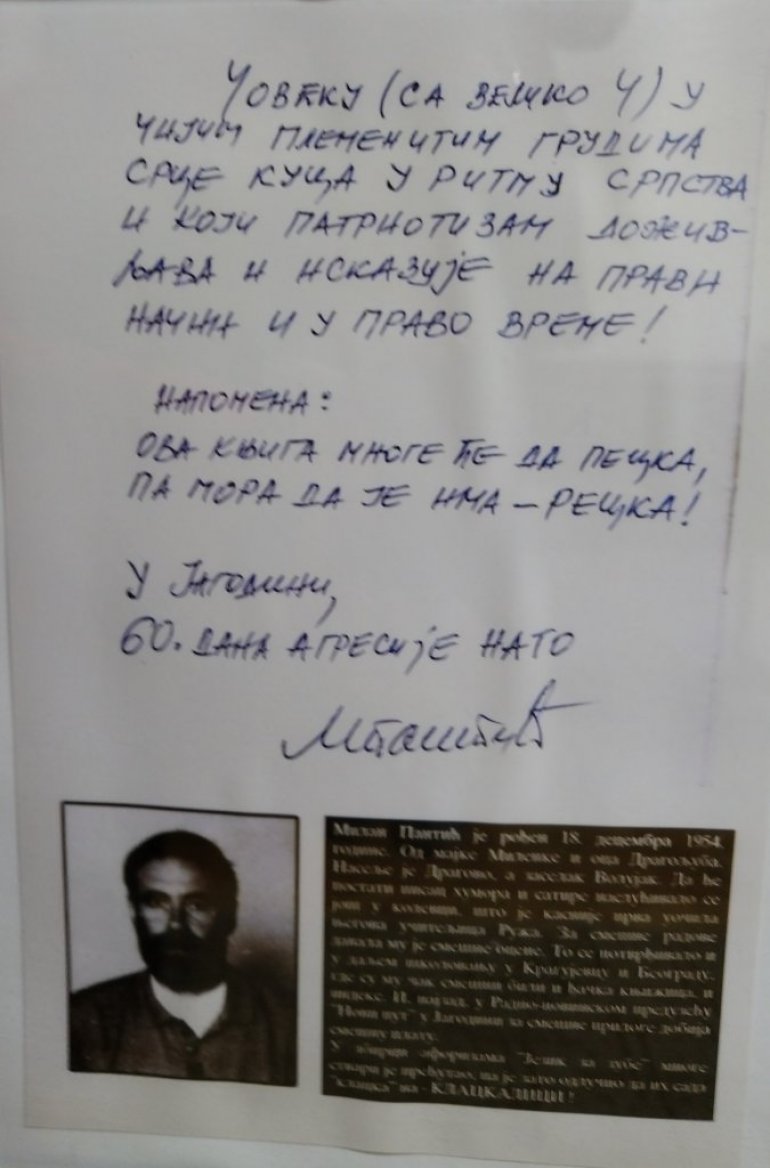 Човеку (са велико Ч) у
чијим племенитим грудима
срце куца у ритму српства
и који патриотизам дожив-
љава и исказује на прави
начин и у право време!
Напомена:
Ова књига многе ће да пецка,
па мора да је има – рецка!
У Јагодини,
60. дана агресије НАТО
МПантић
Милан Пантић је рођен 18. децембра 1954.
године. Од мајке Миленке и оца Драгољуба.
Насеље је Драгово, а заселак Волујак. Да ће
постати писац хумора и сатире наслућивало се
још у колевци, што је касније прва уочила
његова учитељица Ружа. За смешне радове
давала му је смешне оцене. То се потврђивало и
у даљем школовању у Крагујевцу и Београду,
где су му чак смешни били и ђачка књижица, и
индекс. И, најзад, у Радио-новинском предузећу
"Нови пут" у Јагодини за смешне прилоге добија
смешну плату.
У збирци афоризама "Језик за зубе" многе
ствари је прећутао, па је зато одлучио да их сада
"клацка" на - КЛАЦКАЛИЦИ !